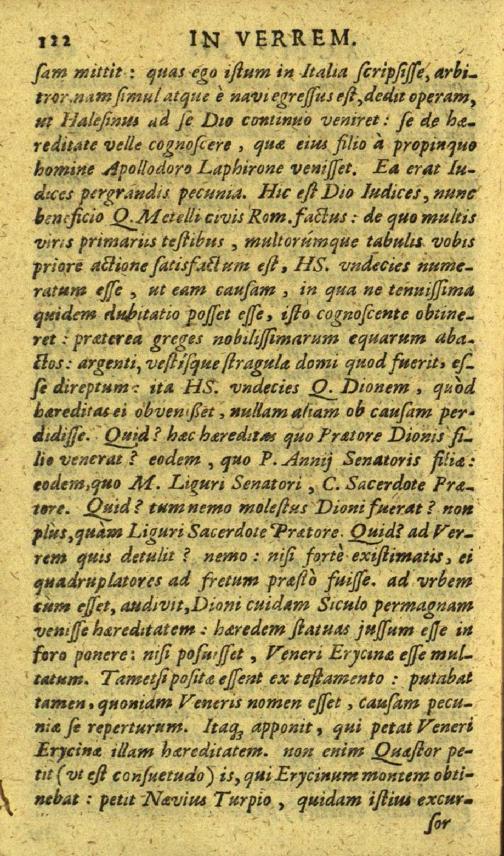 122 IN VERREM.
ſam mittit : quas ego iſtum in Italia ſcripſiſſe, arbi-
tror. nam ſimul atque è navi egreſſus eſt, dedit operam,
ut Haleſinus ad ſe Dio continuo veniret : ſe de hæ-
reditate velle cognoſcere , quæ eius filio à propinquo
homine Apollodoro Laphirone veniſſet. Ea erat Iu-
dices pergrandis pecunia. Hic eſt Dio Iudices, nunc
beneficio Q. Metelli civis Rom. factus : de quo multis
viris primariis teſtibus , multorúmque tabulis vobis
priore actione ſatisfactum eſt , HS. vndecies nume-
ratum eſſe , ut eam cauſam , in qua ne tenuiſſima
quidem dubitatio poſſet eſſe , iſto cognoſcente obtine-
ret : præterea greges nobiliſſimarum equarum aba-
ctos : argenti, veſtiſque ſtragulæ domi quod fuerit, eſ-
ſe direptum : ita HS. vndecies Q. Dionem , quòd
hæreditas ei obveniſſet , nullam aliam ob cauſam per-
didiſſe. Quid ? hæc hæreditas quo Prætore Dionis fi-
lio venerat ? eodem , quo P. Annij Senatoris filiæ :
eodem, quo M. Liguri Senatori , C. Sacerdote Præ-
tore. Quid ? tum nemo moleſtus Dioni fuerat ? non
plus, quàm Liguri Sacerdote Prætore. Quid? ad Ver-
rem quis detulit ? nemo : niſi fortè exiſtimatis, ei
quadruplatores ad fretum præſtò fuiſſe. ad vrbem
cùm eſſet, audivit, Dioni cuidam Siculo permagnam
veniſſe hæreditatem : hæredem ſtatuas juſſum eſſe in
foro ponere : niſi poſuiſſet , Veneri Erycinæ eſſe mul-
tatum. Tametſi poſitæ eſſent ex teſtamento : putabat
tamen, quoniam Veneris nomen eſſet , cauſam pecu-
niæ ſe reperturum. Itaqꝫ apponit , qui petat Veneri
Erycinæ illam hæreditatem. non enim Quæſtor pe-
tit (vt eſt conſuetudo) is, qui Erycinum montem obti-
nebat : petit Nævius Turpio , quidam iſtius excur-
ſor